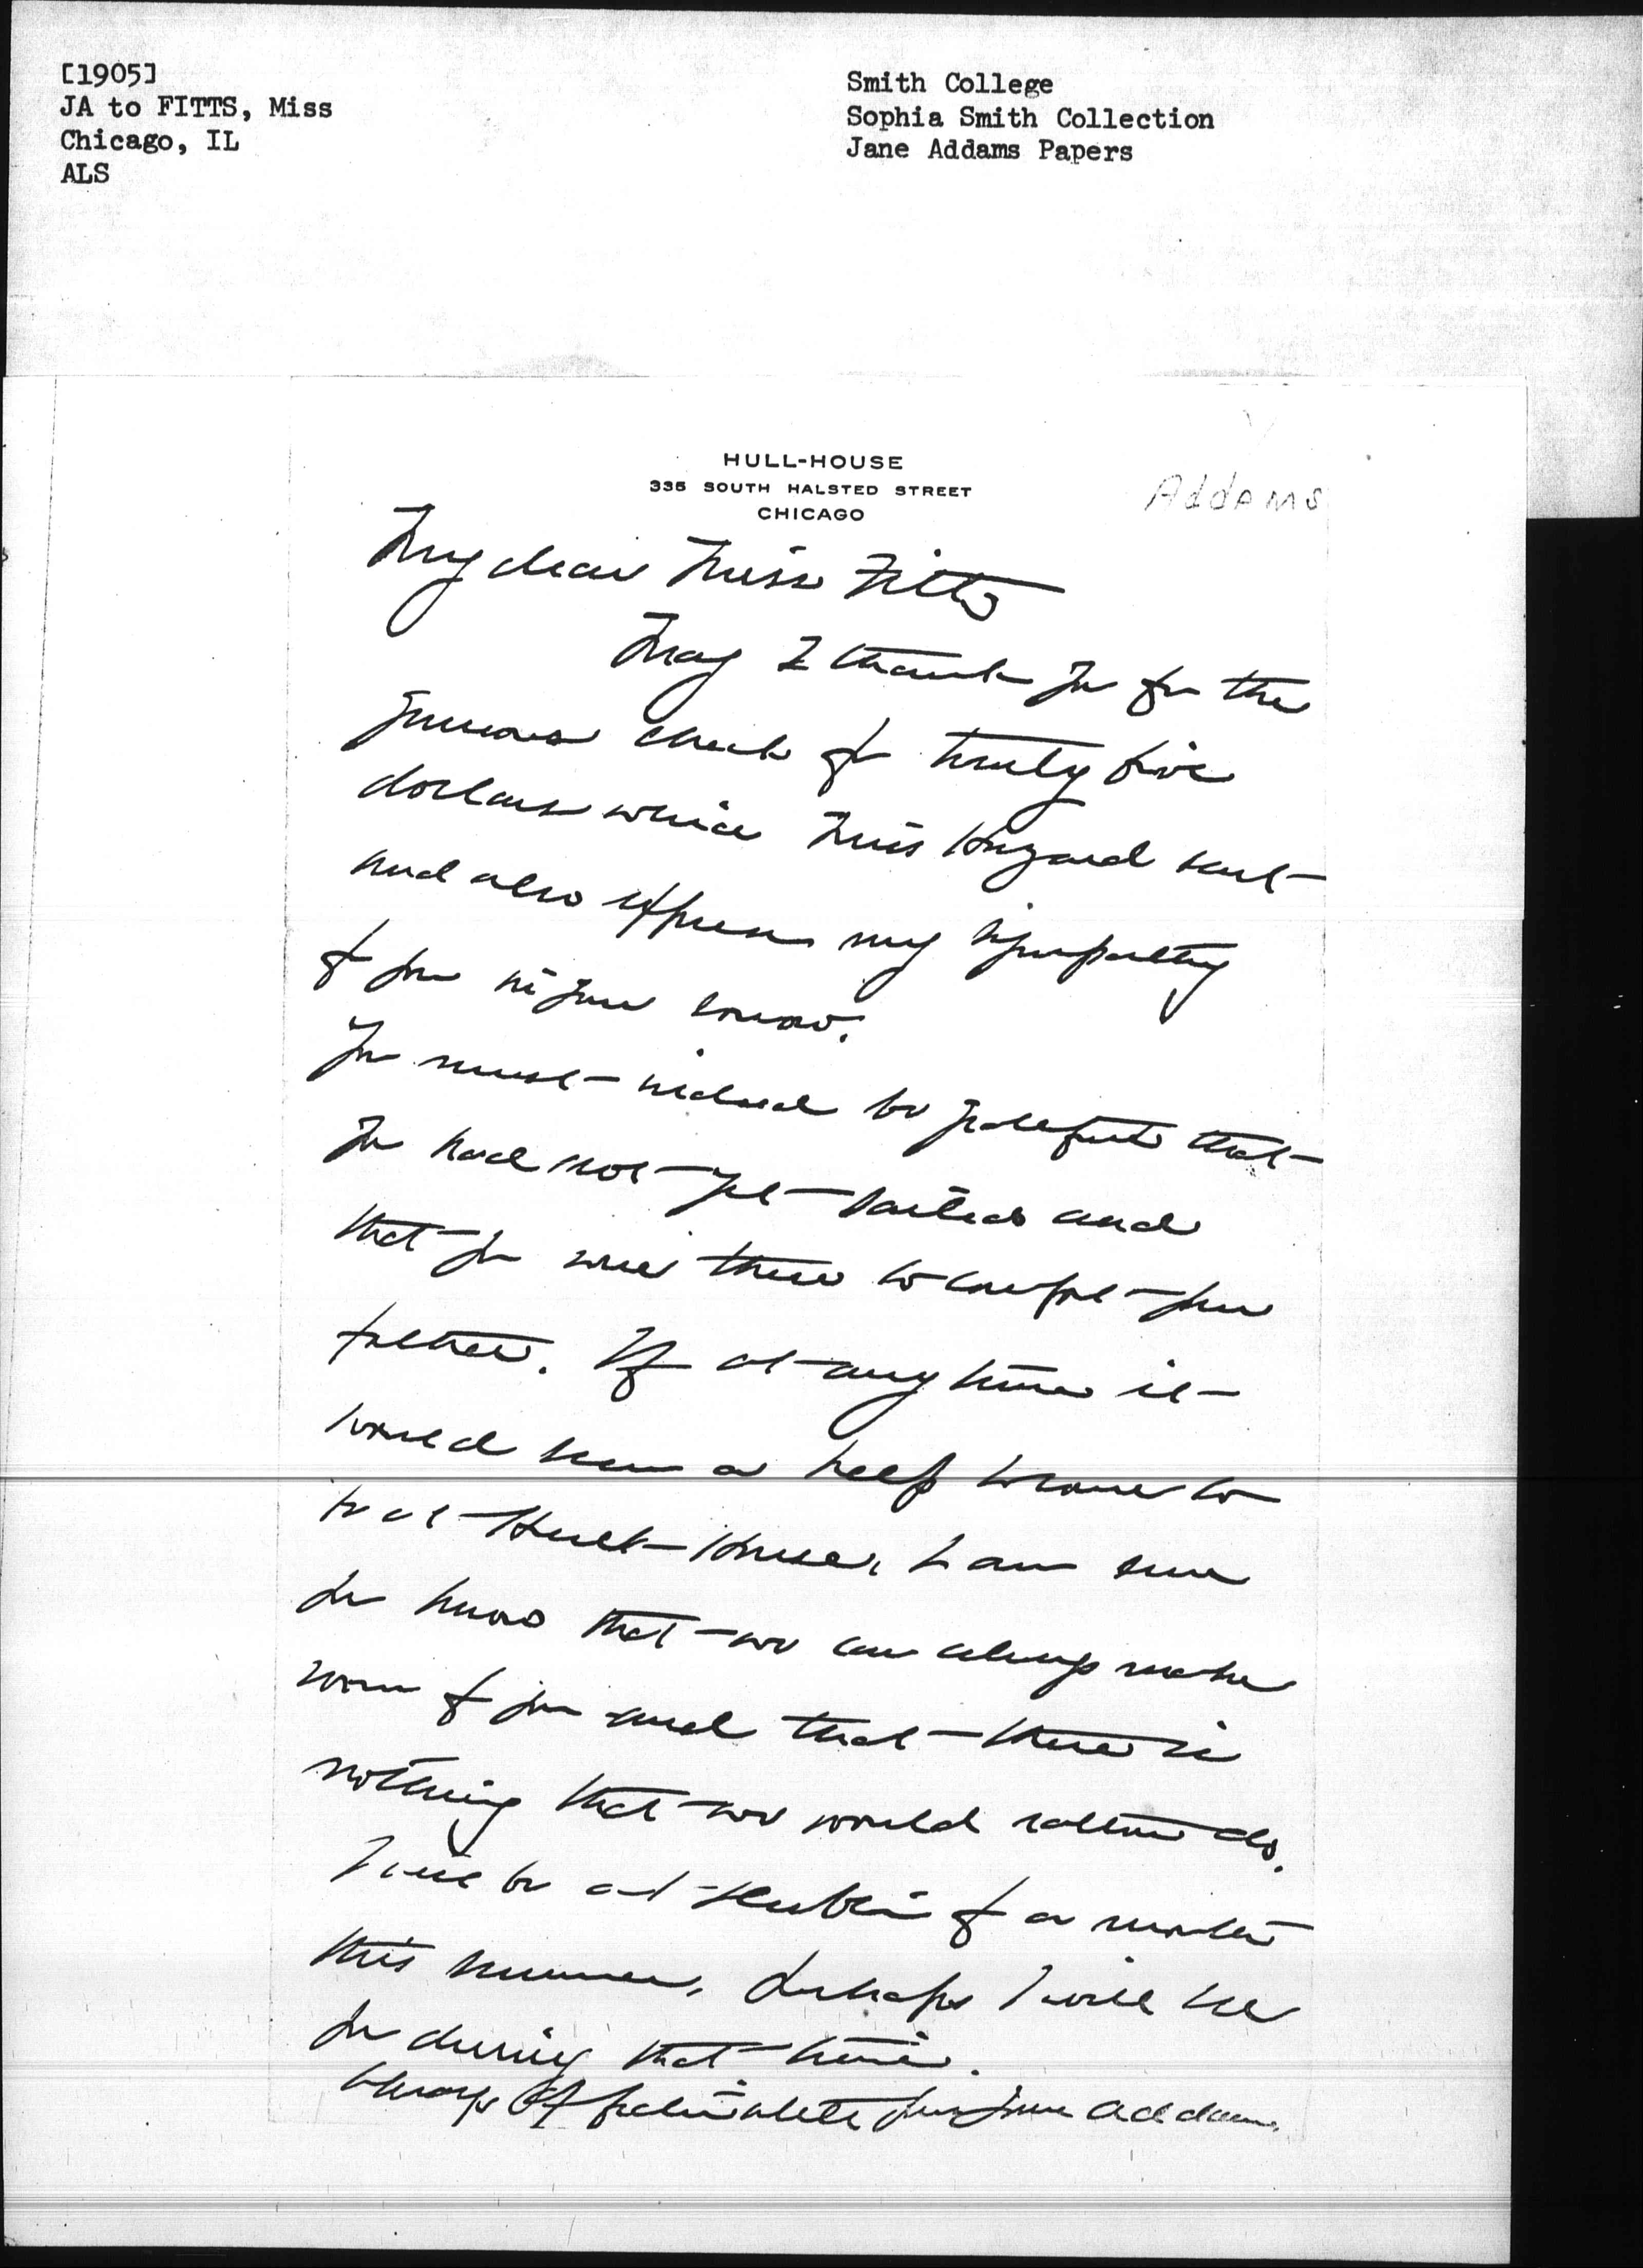 [1905]
JA to FITTS, Miss
Chicago, IL
ALS
Smith College
Sophia Smith Collection
Jane Addams Papers
HULL-HOUSE
335 SOUTH HALSTED STREET
CHICAGO
Addams
My dear Miss Fitts
May I thank you for the
generous check of twenty five
dollars which Miss Hazard sent
and also express my sympathy
for you in your sorrow.
You must indeed be grateful that
you had not yet sailed and
that you were there to comfort your
father. If at any time it
would seem a help to come to
us at Hull-House, I am sure
you know that we can always make
room for you and that there is
nothing that we would rather do.
I will be at for a month
this summer, perhaps I will see
you during that time.
Always affectionately yours Jane Addams